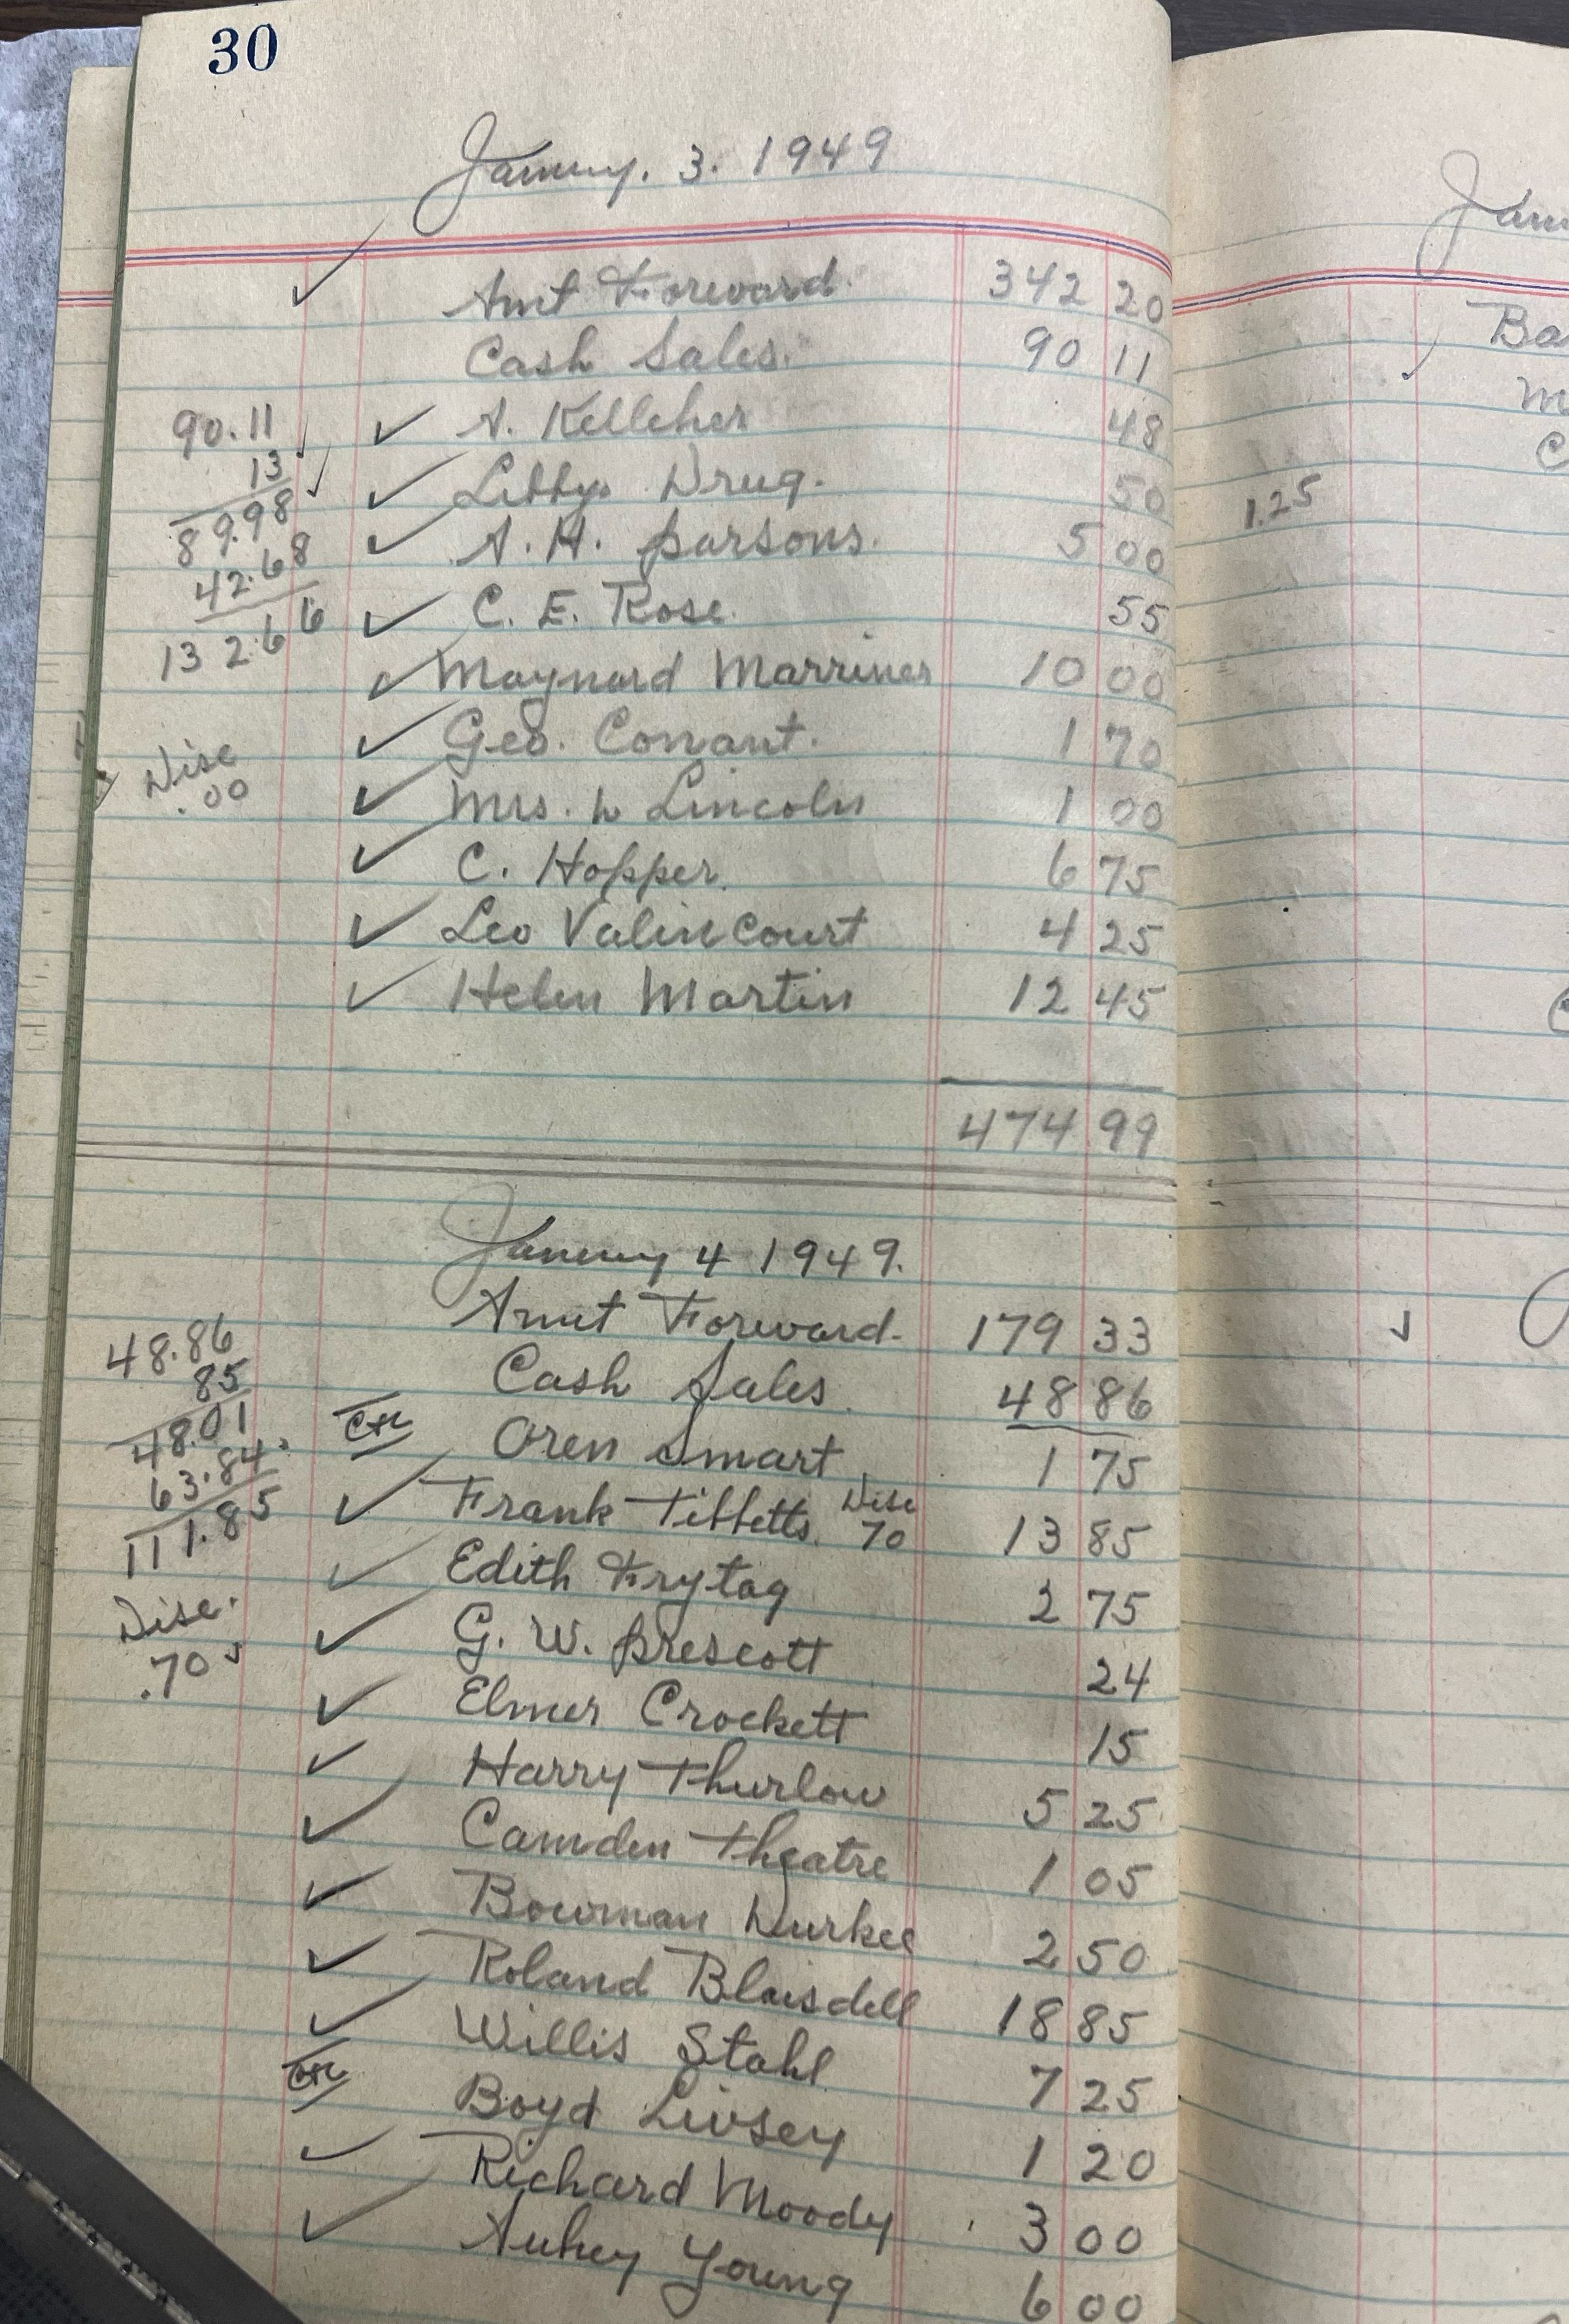 30
January. 3. 1949
Amt Forward. 342 20
Cash Sales. 90 11
A. Kelleher 48
90.11
Libbys Drug. 50
13
A. H. Parsons. 5 00
89.98
42.68
C. E. Rose. 55
132.66
Maynard Marriner 10 00
Geo. Conant. 1 70
Disc
.00
Mrs. L Lincoln 1 00
C. Hopper. 6 75
Leo Valincourt 4 25
Helen Martin 12 45
474 99
January 4 1949.
Amt Forward. 179 33
48.86
Cash Sales. 48 86
85
48.01
Oren Smart 1 75
63.84
111.85
Frank Tibbetts. Disc 70 13 85
Edith Frytag 2 75
Disc.
.70
G. W. Prescott 24
Elmer Crockett 15
Harry Thurlow 5 25
Camden Theatre 1 05
Bowman Durkee 2 50
Roland Blaisdell 18 85
Willis Stahl 7 25
Boyd Livsey 1 20
Richard Moody 3 00
Young 6 00
Jan
Ba
M
C
1.25